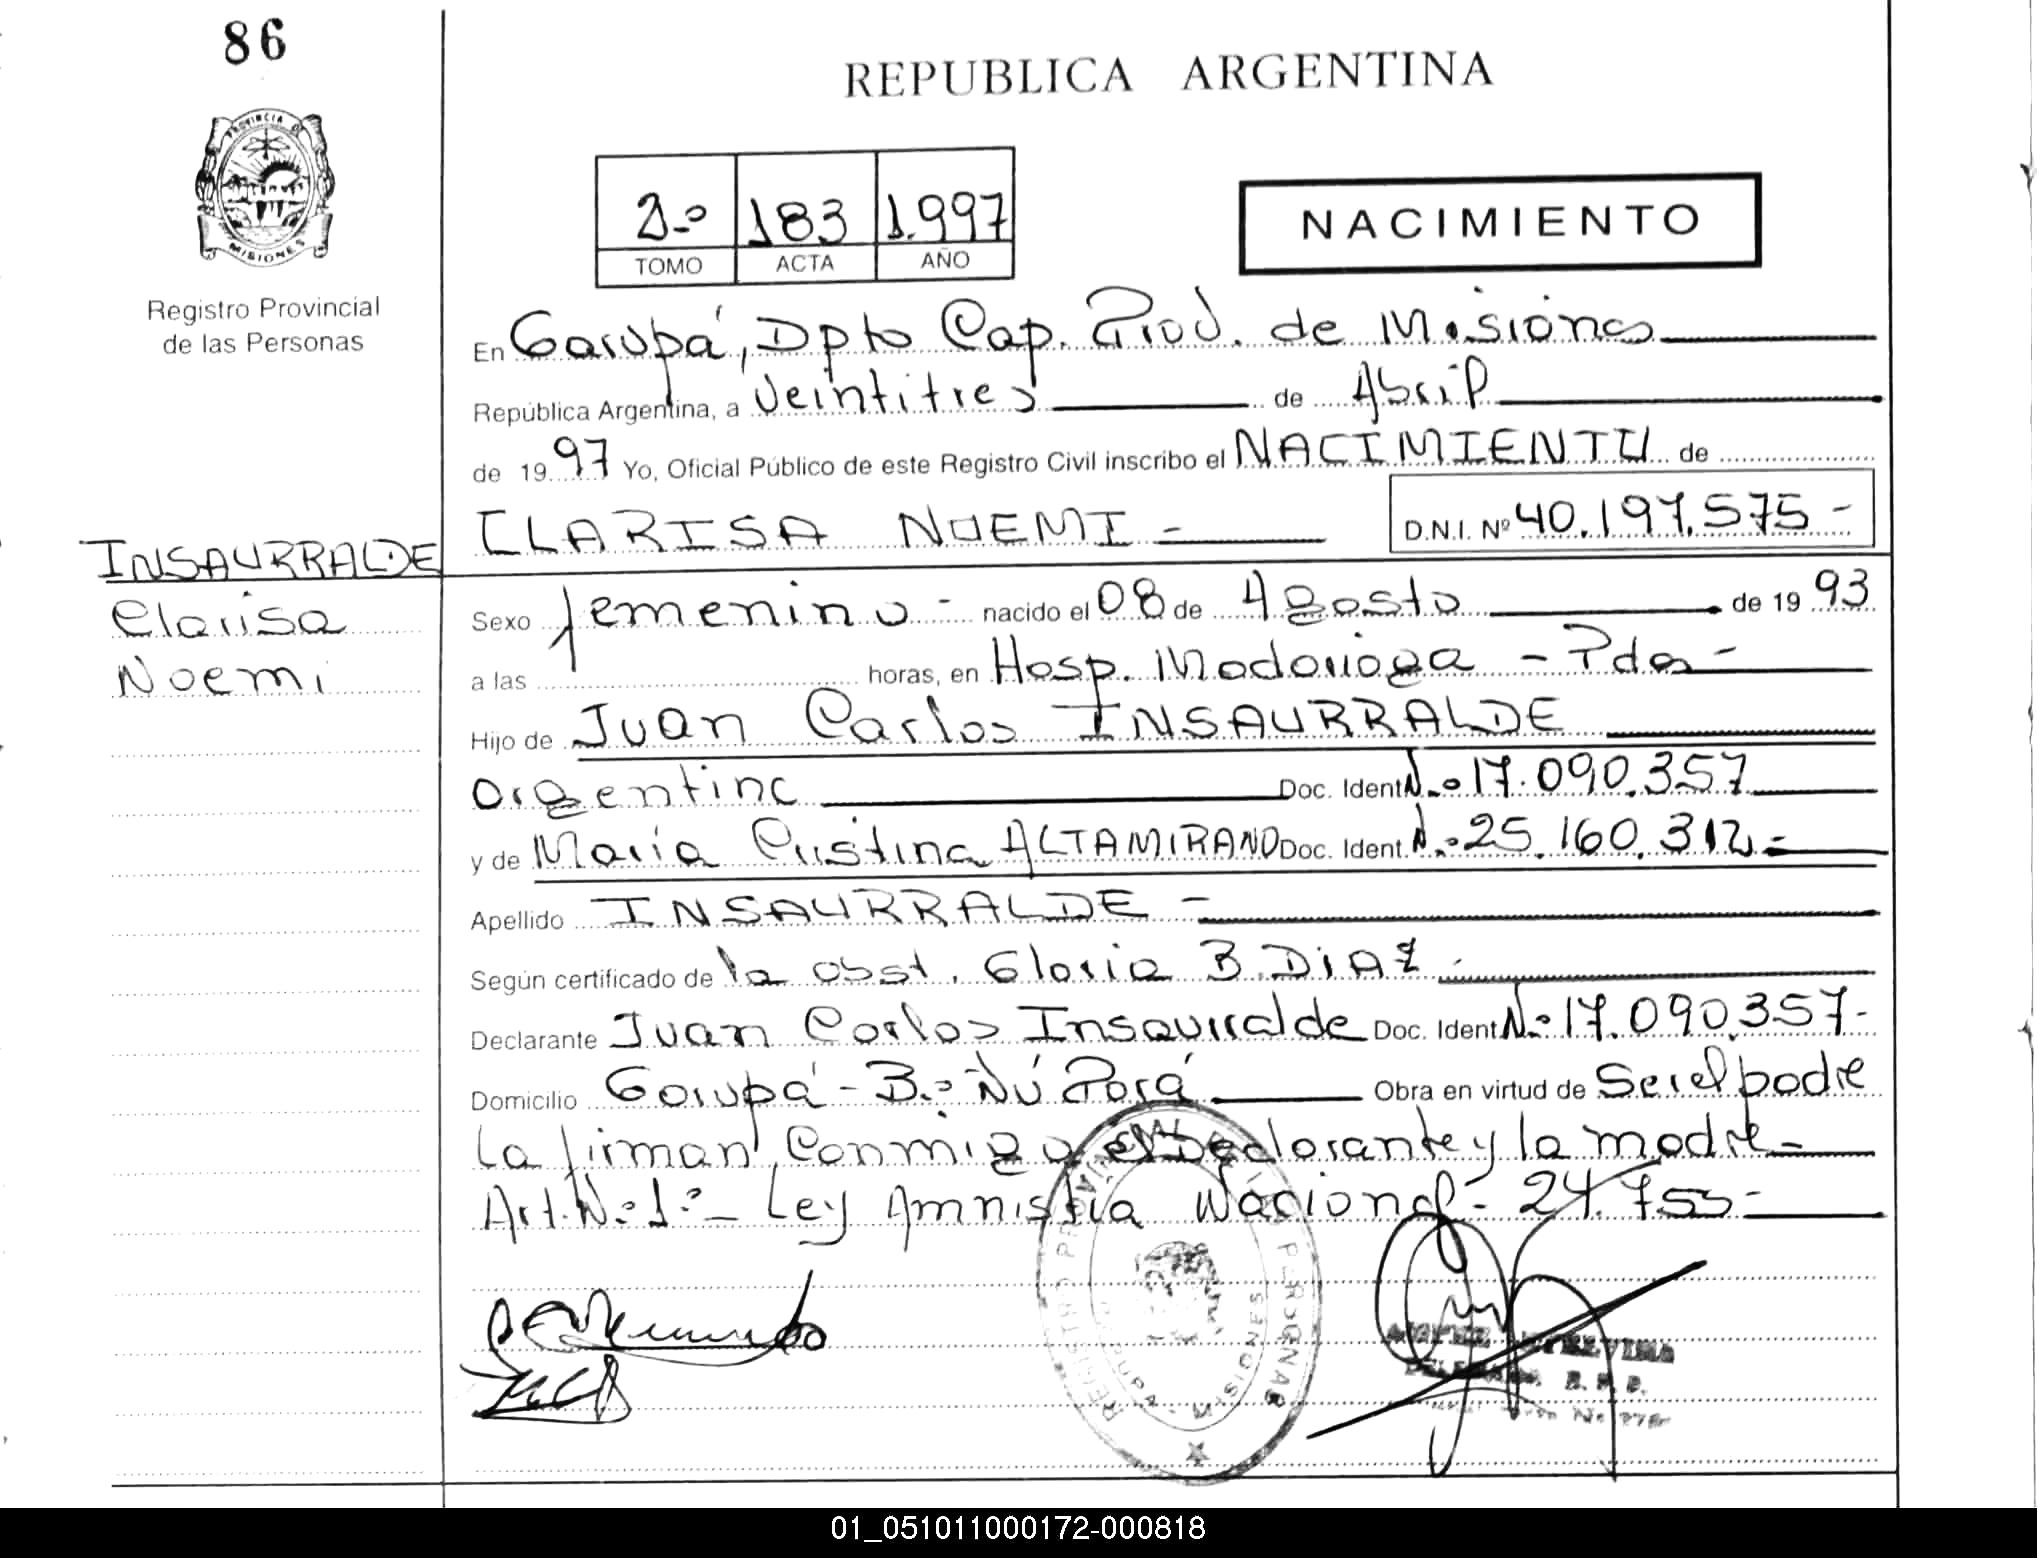 86
REPUBLICA ARGENTINA
PROVINCIA D
MISIONES
Registro Provincial
de las Personas
2º 183 1.997
TOMO ACTA AÑO
NACIMIENTO
En Garupá, Dpto Cap. Prov. de Misiones
República Argentina, a veintitres de Abril
de 1997 Yo, Oficial Público de este Registro Civil inscribo el NACIMIENTO de
CLARISA NOEMI - D.N.I. Nº 40.197.575-
INSAURRALDE
Clarisa
Noemi
Sexo femenino - nacido el 08 de Agosto de 1993
a las horas, en Hosp. Madariaga - Pdas -
Hijo de Juan Carlos INSAURRALDE
argentina Doc. Ident Nº 17.090.357
y de María Cristina ALTAMIRANO Doc. Ident. Nº 25.160.312-
Apellido INSAURRALDE -
Según certificado de la obst. Gloria B. DIAZ.
Declarante Juan Carlos Insaurralde Doc. Ident Nº 17.090.357-
Domicilio Garupá - Bº Ñú Porá Obra en virtud de Ser el padre
La firman conmigo el Declarante y la madre-
Art. Nº 1º - Ley Amnistía Nacional - 24.755-
REGISTRO PROVINCIAL DE LAS PERSONAS
GARUPA - MISIONES
01_051011000172-000818